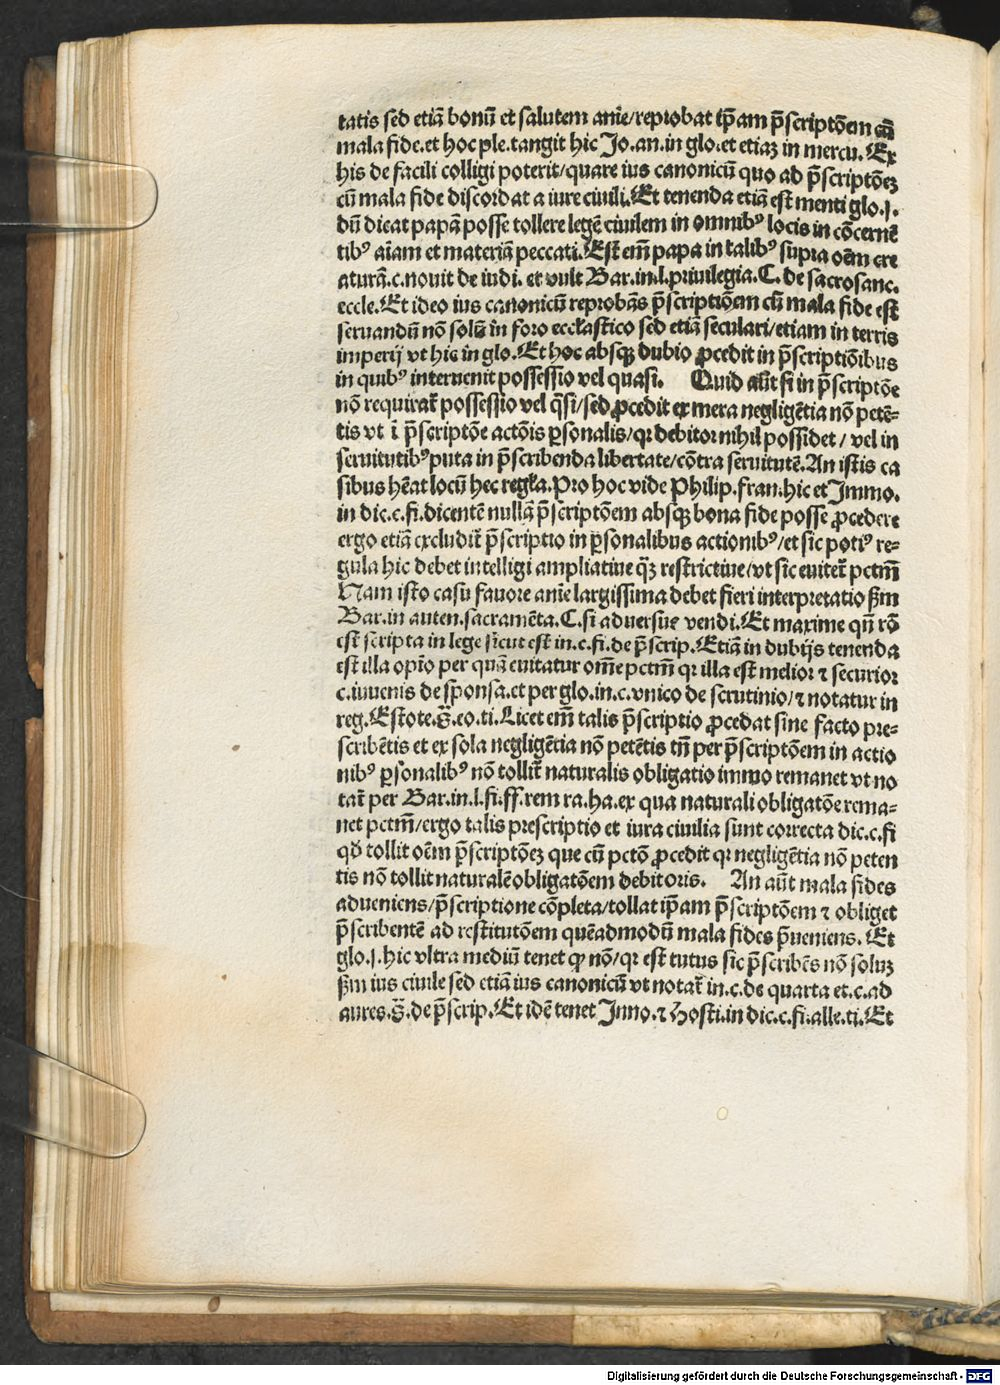 tatis sed etiā bonū et salutem anīe/reprobat ip̄am p̄scriptōem cū
mala fide.et hoc ple.tangit hic Jo.an.in glo.et etiaꝫ in mercu. Ex
his de facili colligi poterit/quare ius canonicū quo ad p̄scriptōeꝫ
cū mala fide discordat a iure ciuili. Et tenenda etiā est menti glo.j.
dū dicat papā posse tollere legē ciuilem in omnibꝰ locis in cōcernē
tibꝰ aīam et materiā peccati. Est em̄ papa in talibꝰ supra oēm cre
aturā.c.nouit de iudi. et vult Bar.in.l.priuilegia. C. de sacrosanc.
eccle. Et ideo ius canonicū reprobās p̄scriptiōem cū mala fide est
seruandū nō solū in foro eccl̄astico sed etiā seculari/etiam in terris
imperij vt hic in glo. Et hoc absqꝫ dubio ꝓcedit in p̄scriptiōibus
in quibꝰ interuenit possessio vel quasi. Quid aūt si in p̄scriptōe
nō requirat̄ possessio vel q̄si/sed ꝓcedit ex mera negligētia nō petē-
tis vt ī p̄scriptōe actōis ꝑsonalis/qꝛ debitor nihil possidet/vel in
seruitutibꝰ puta in p̄scribenda libertate/cōtra seruitutē. An istis ca
sibus hēat locū hec regl̄a. Pro hoc vide Philip.fran.hic et Immo.
in dic.c.fi.dicentē nullā p̄scriptōem absqꝫ bona fide posse ꝓcedere
ergo etiā excludit̄ p̄scriptio in ꝑsonalibus actionibꝰ/et sic potiꝰ re-
gula hic debet intelligi ampliatiue q̄ꝫ restrictiue/vt sic euitet̄ pctm̄
Nam isto casu fauore anīe largissima debet fieri interpretatio ẜm
Bar.in auten.sacramēta. C. si aduersus vendi. Et maxime qn̄ rō
est scripta in lege sicut est in.c.fi.de p̄scrip. Etiā in dubijs tenenda
est illa opīo per quā euitatur om̄e pctm̄ qꝛ illa est melior ⁊ securior
c.iuuenis de sponsa.et per glo.in.c.vnico de scrutinio/⁊ notatur in
reg. Estote.s̄.eo.ti. Licet em̄ talis p̄scriptio ꝓcedat sine facto pre-
scribētis et ex sola negligētia nō petētis tn̄ per p̄scriptōem in actio
nibꝰ ꝑsonalibꝰ nō tollit̄ naturalis obligatio immo remanet vt no
tat̄ per Bar.in.l.fi.ff.rem ra.ha.ex qua naturali obligatōe rema-
net pctm̄/ergo talis prescriptio et iura ciuilia sunt correcta dic.c.fi
qđ tollit oēm p̄scriptōeꝫ que cū pctō ꝓcedit qꝛ negligētia nō peten
tis nō tollit naturalē obligatōem debitoris. An aūt mala fides
adueniens/p̄scriptione cōpleta/tollat ip̄am p̄scriptōem ⁊ obliget
p̄scribentē ad restitutōem quēadmodū mala fides p̄ueniens. Et
glo.j.hic vltra mediū tenet ꝙ nō/qꝛ est tutus sic p̄scribēs nō soluꝫ
ẜm ius ciuile sed etiā ius canonicū vt notat̄ in.c.de quarta et.c.ad
aures.s̄.de p̄scrip. Et idē tenet Inno.⁊ Hosti.in dic.c.fi.alle.ti. Et
Digitalisierung gefördert durch die Deutsche Forschungsgemeinschaft - DFG